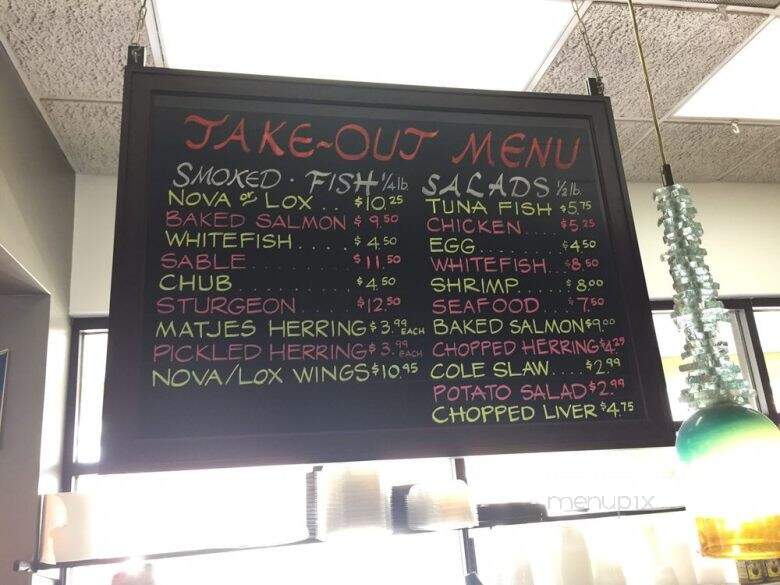 TAKE-OUT MENU
SMOKED · FISH 1/4 lb.
NOVA or LOX .. $10.25
BAKED SALMON $9.50
WHITEFISH .... $4.50
SABLE .......... $11.50
CHUB ........... $4.50
STURGEON ...... $12.50
MATJES HERRING $3.99 EACH
PICKLED HERRING $3.99 EACH
NOVA/LOX WINGS $10.95
SALADS 1/2 lb.
TUNA FISH $5.75
CHICKEN .... $5.25
EGG ........ $4.50
WHITEFISH .. $8.50
SHRIMP ..... $8.00
SEAFOOD .. $7.50
BAKED SALMON $9.00
CHOPPED HERRING $4.29
COLE SLAW .... $2.99
POTATO SALAD $2.99
CHOPPED LIVER $4.75
menupix